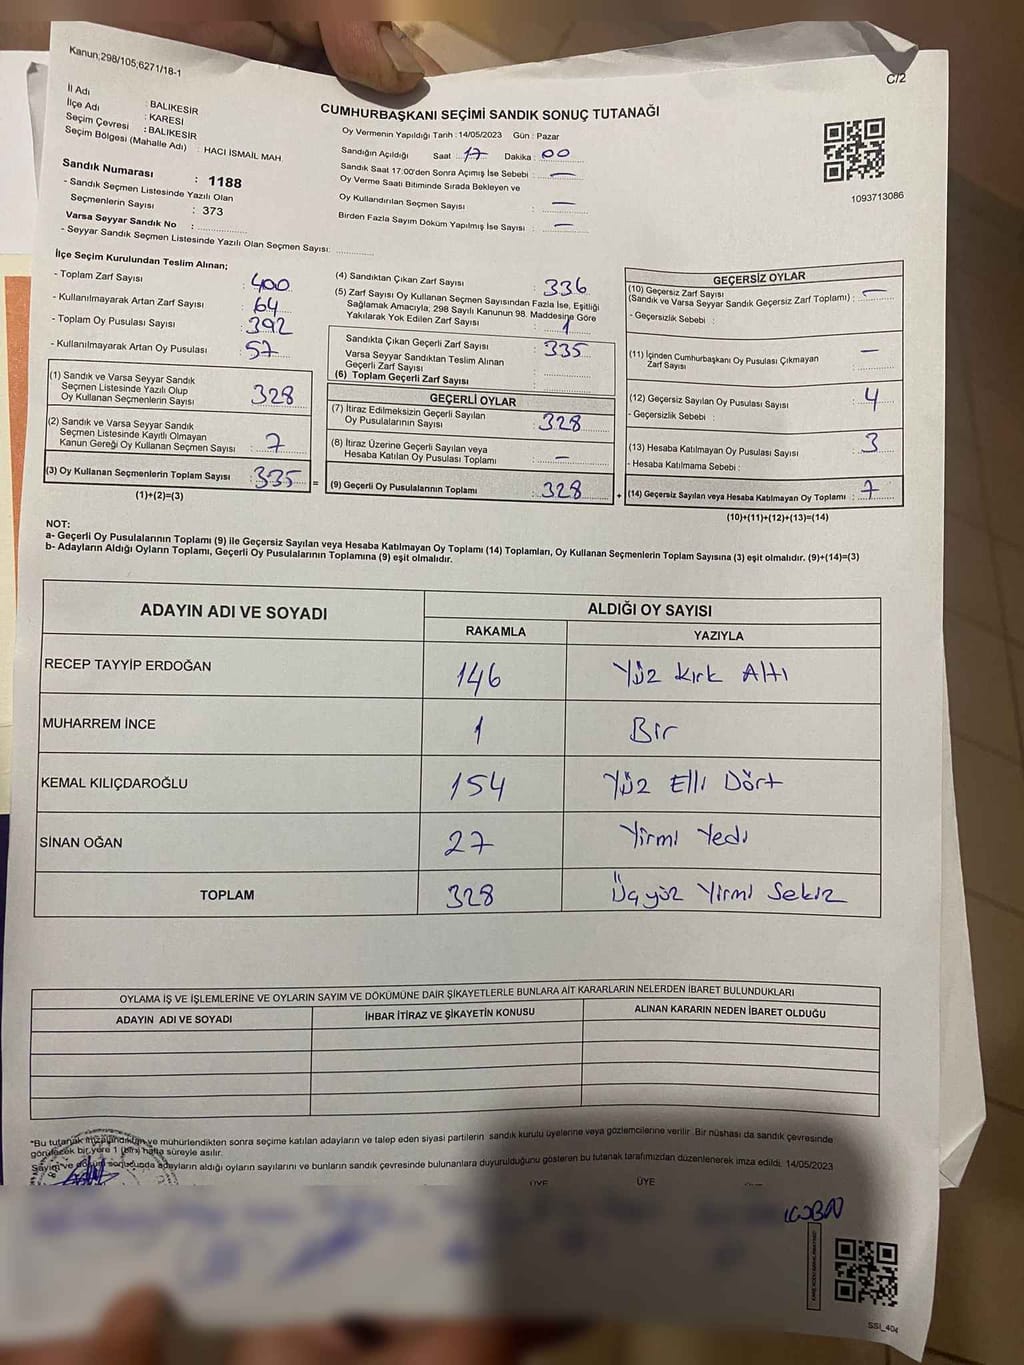 Kanun;298/105;6271/18-1
C/2
İl Adı : BALIKESİR
İlçe Adı : KARESİ
Seçim Çevresi : BALIKESİR
Seçim Bölgesi (Mahalle Adı) : HACI İSMAİL MAH.
Sandık Numarası : 1188
- Sandık Seçmen Listesinde Yazılı Olan
Seçmenlerin Sayısı : 373
Varsa Seyyar Sandık No :
- Seyyar Sandık Seçmen Listesinde Yazılı Olan Seçmen Sayısı:
CUMHURBAŞKANI SEÇİMİ SANDIK SONUÇ TUTANAĞI
Oy Vermenin Yapıldığı Tarih : 14/05/2023 Gün : Pazar
Sandığın Açıldığı Saat : 17 Dakika : 00
Sandık Saat 17:00'den Sonra Açımış İse Sebebi : —
Oy Verme Saati Bitiminde Sırada Bekleyen ve
Oy Kullandırılan Seçmen Sayısı : —
Birden Fazla Sayım Döküm Yapılmış İse Sayısı : —
1093713086
İlçe Seçim Kurulundan Teslim Alınan;
- Toplam Zarf Sayısı : 400
- Kullanılmayarak Artan Zarf Sayısı : 64
- Toplam Oy Pusulası Sayısı : 392
- Kullanılmayarak Artan Oy Pusulası : 57
(1) Sandık ve Varsa Seyyar Sandık
Seçmen Listesinde Yazılı Olup
Oy Kullanan Seçmenlerin Sayısı : 328
(2) Sandık ve Varsa Seyyar Sandık
Seçmen Listesinde Kayıtlı Olmayan
Kanun Gereği Oy Kullanan Seçmen Sayısı : 7
(3) Oy Kullanan Seçmenlerin Toplam Sayısı : 335 =
(1)+(2)=(3)
(4) Sandıktan Çıkan Zarf Sayısı : 336
(5) Zarf Sayısı Oy Kullanan Seçmen Sayısından Fazla İse, Eşitliği
Sağlamak Amacıyla; 298 Sayılı Kanunun 98. Maddesine Göre
Yakılarak Yok Edilen Zarf Sayısı : 1
Sandıkta Çıkan Geçerli Zarf Sayısı : 335
Varsa Seyyar Sandıktan Teslim Alınan
Geçerli Zarf Sayısı :
(6) Toplam Geçerli Zarf Sayısı :
GEÇERLİ OYLAR
(7) İtiraz Edilmeksizin Geçerli Sayılan
Oy Pusulalarının Sayısı : 328
(8) İtiraz Üzerine Geçerli Sayılan veya
Hesaba Katılan Oy Pusulası Toplamı : —
(9) Geçerli Oy Pusulalarının Toplamı : 328 +
GEÇERSİZ OYLAR
(10) Geçersiz Zarf Sayısı
(Sandık ve Varsa Seyyar Sandık Geçersiz Zarf Toplamı) : —
- Geçersizlik Sebebi :
(11) İçinden Cumhurbaşkanı Oy Pusulası Çıkmayan
Zarf Sayısı : —
(12) Geçersiz Sayılan Oy Pusulası Sayısı : 4
- Geçersizlik Sebebi :
(13) Hesaba Katılmayan Oy Pusulası Sayısı : 3
- Hesaba Katılmama Sebebi :
(14) Geçersiz Sayılan veya Hesaba Katılmayan Oy Toplamı : 7
(10)+(11)+(12)+(13)=(14)
NOT:
a- Geçerli Oy Pusulalarının Toplamı (9) ile Geçersiz Sayılan veya Hesaba Katılmayan Oy Toplamı (14) Toplamları, Oy Kullanan Seçmenlerin Toplam Sayısına (3) eşit olmalıdır. (9)+(14)=(3)
b- Adayların Aldığı Oyların Toplamı, Geçerli Oy Pusulalarının Toplamına (9) eşit olmalıdır.
ADAYIN ADI VE SOYADI ALDIĞI OY SAYISI
RAKAMLA YAZIYLA
RECEP TAYYİP ERDOĞAN 146 Yüz Kırk Altı
MUHARREM İNCE 1 Bir
KEMAL KILIÇDAROĞLU 154 Yüz Elli Dört
SİNAN OĞAN 27 Yirmi Yedi
TOPLAM 328 Üçyüz Yirmi Sekiz
OYLAMA İŞ VE İŞLEMLERİNE VE OYLARIN SAYIM VE DÖKÜMÜNE DAİR ŞİKAYETLERLE BUNLARA AİT KARARLARIN NELERDEN İBARET BULUNDUKLARI
ADAYIN ADI VE SOYADI İHBAR İTİRAZ VE ŞİKAYETİN KONUSU ALINAN KARARIN NEDEN İBARET OLDUĞU
"Bu tutanak imzalandıktan ve mühürlendikten sonra seçime katılan adayların ve talep eden siyasi partilerin sandık kurulu üyelerine veya gözlemcilerine verilir. Bir nüshası da sandık çevresinde
görülecek bir yere 1 (bir) hafta süreyle asılır.
Sayım ve döküm sonucunda adayların aldığı oyların sayılarını ve bunların sandık çevresinde bulunanlara duyurulduğunu gösteren bu tutanak tarafımızdan düzenlenerek imza edildi. 14/05/2023
ÜYE ÜYE
SSI_404